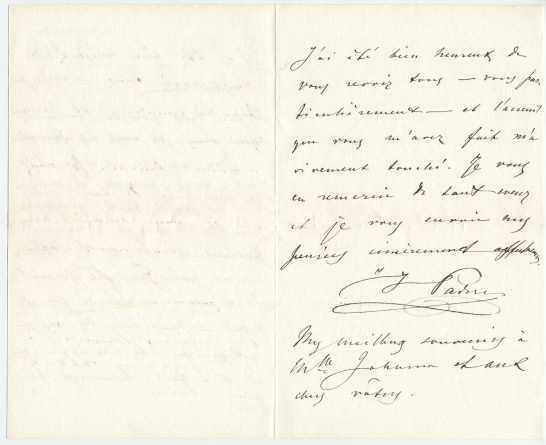 J'ai été bien heureux de
vous revoir tous — vous par-
ticulièrement — et l'accueil
que vous m'avez fait m'a
vivement touché. Je vous
en remercie de tout cœur
et je vous envoie mes
pensées sincèrement affectueuses.
Mes meilleurs souvenirs à
Mlle Johanna et aux
chers vôtres.